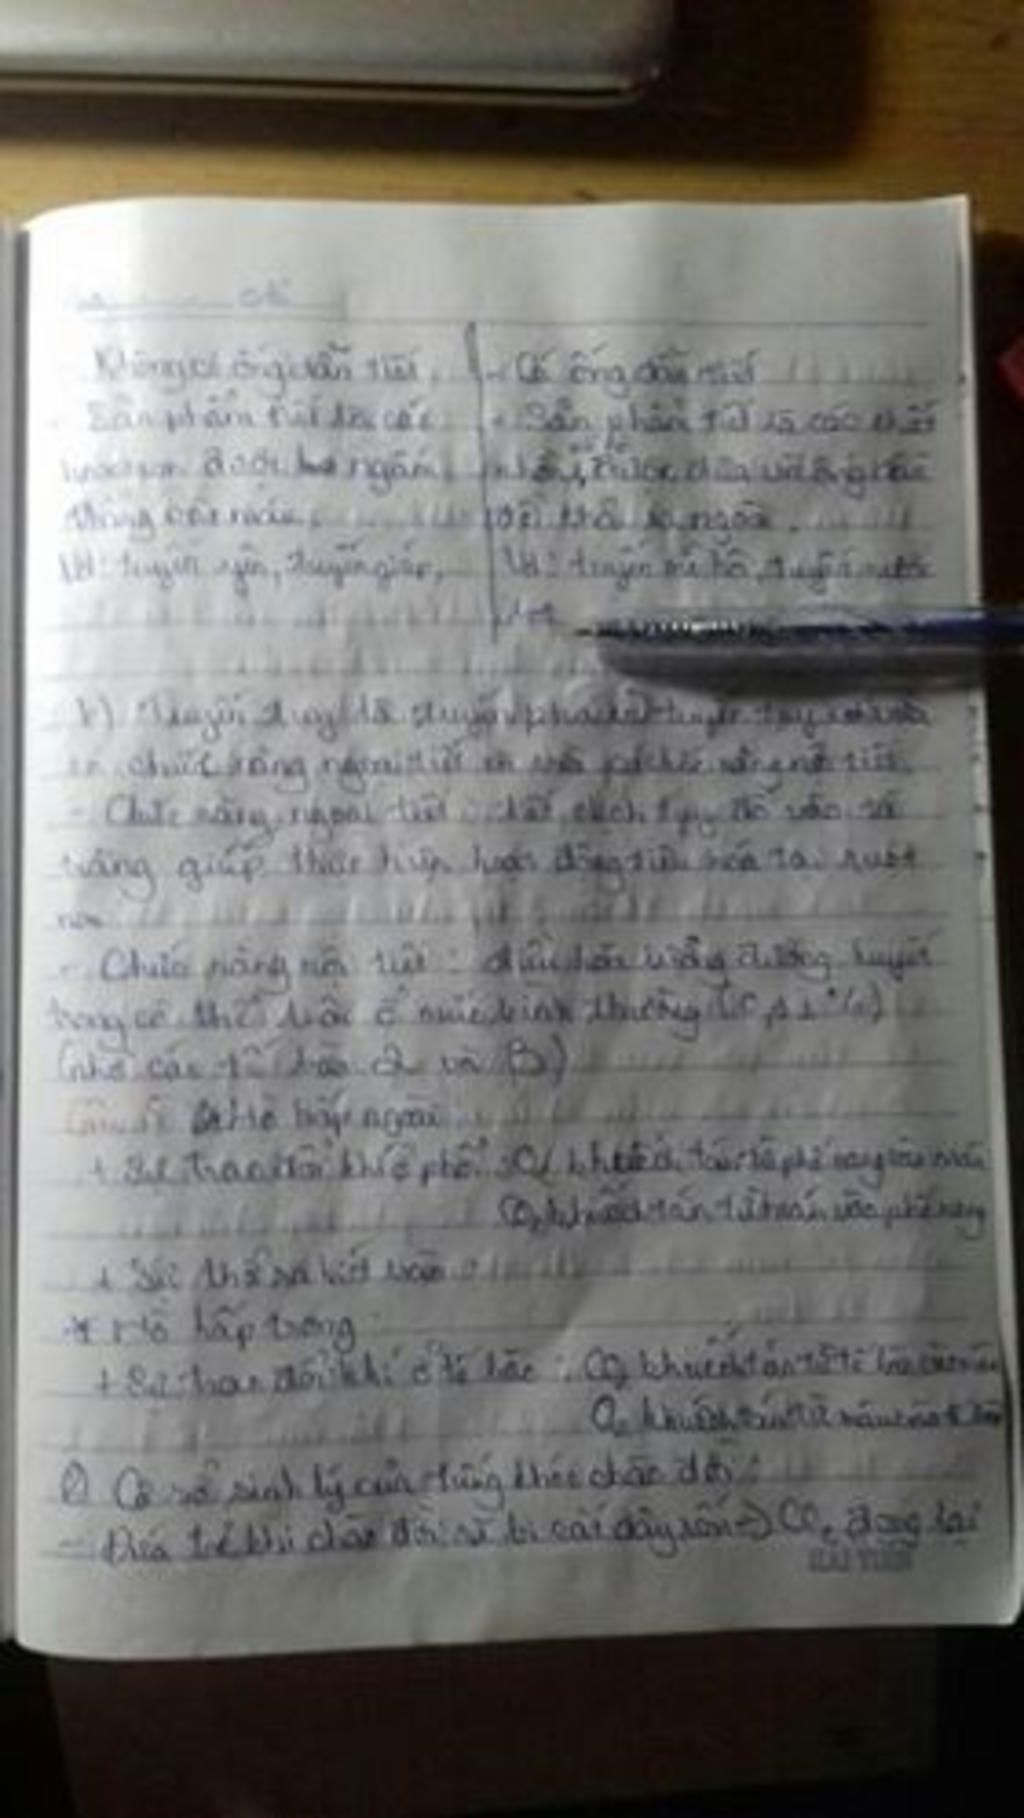 Không có ống dẫn tiết
- Có ống dẫn tiết
- Sản phẩm tiết là các
- Sản phẩm tiết là các chất
được ngấm
thẳng vào máu
để thải ra ngoài.
Vd: tuyến yên, tuyến giáp,
Vd: tuyến mồ hôi, tuyến nước
b) Tuyến tụy là tuyến pha vì tuyến tụy
chức năng ngoại tiết chức năng nội tiết.
- Chức năng ngoại tiết: tiết dịch tụy đổ vào tá
tràng giúp thực hiện hoạt động tiêu hóa tại ruột
non
- Chức năng nội tiết: điều hòa lượng đường huyết
trong cơ thể luôn ở mức bình thường
(nhờ các tế bào α và β)
Câu 5: Hô hấp ngoài
+ Sự trao đổi khí ở phổi: O₂ khuếch tán từ phế nang vào máu
CO₂ khuếch tán từ máu vào phế nang
+ Sự thở ra hít vào
* Hô hấp trong
+ Sự trao đổi khí ở tế bào: CO₂ khuếch tán từ tế bào vào máu
O₂ khuếch tán từ máu vào tế bào
Cơ sở sinh lý của tiếng khóc chào đời:
- Đứa trẻ khi chào đời sẽ bị cắt dây rốn => CO₂ đọng lại
HẢI TIẾN